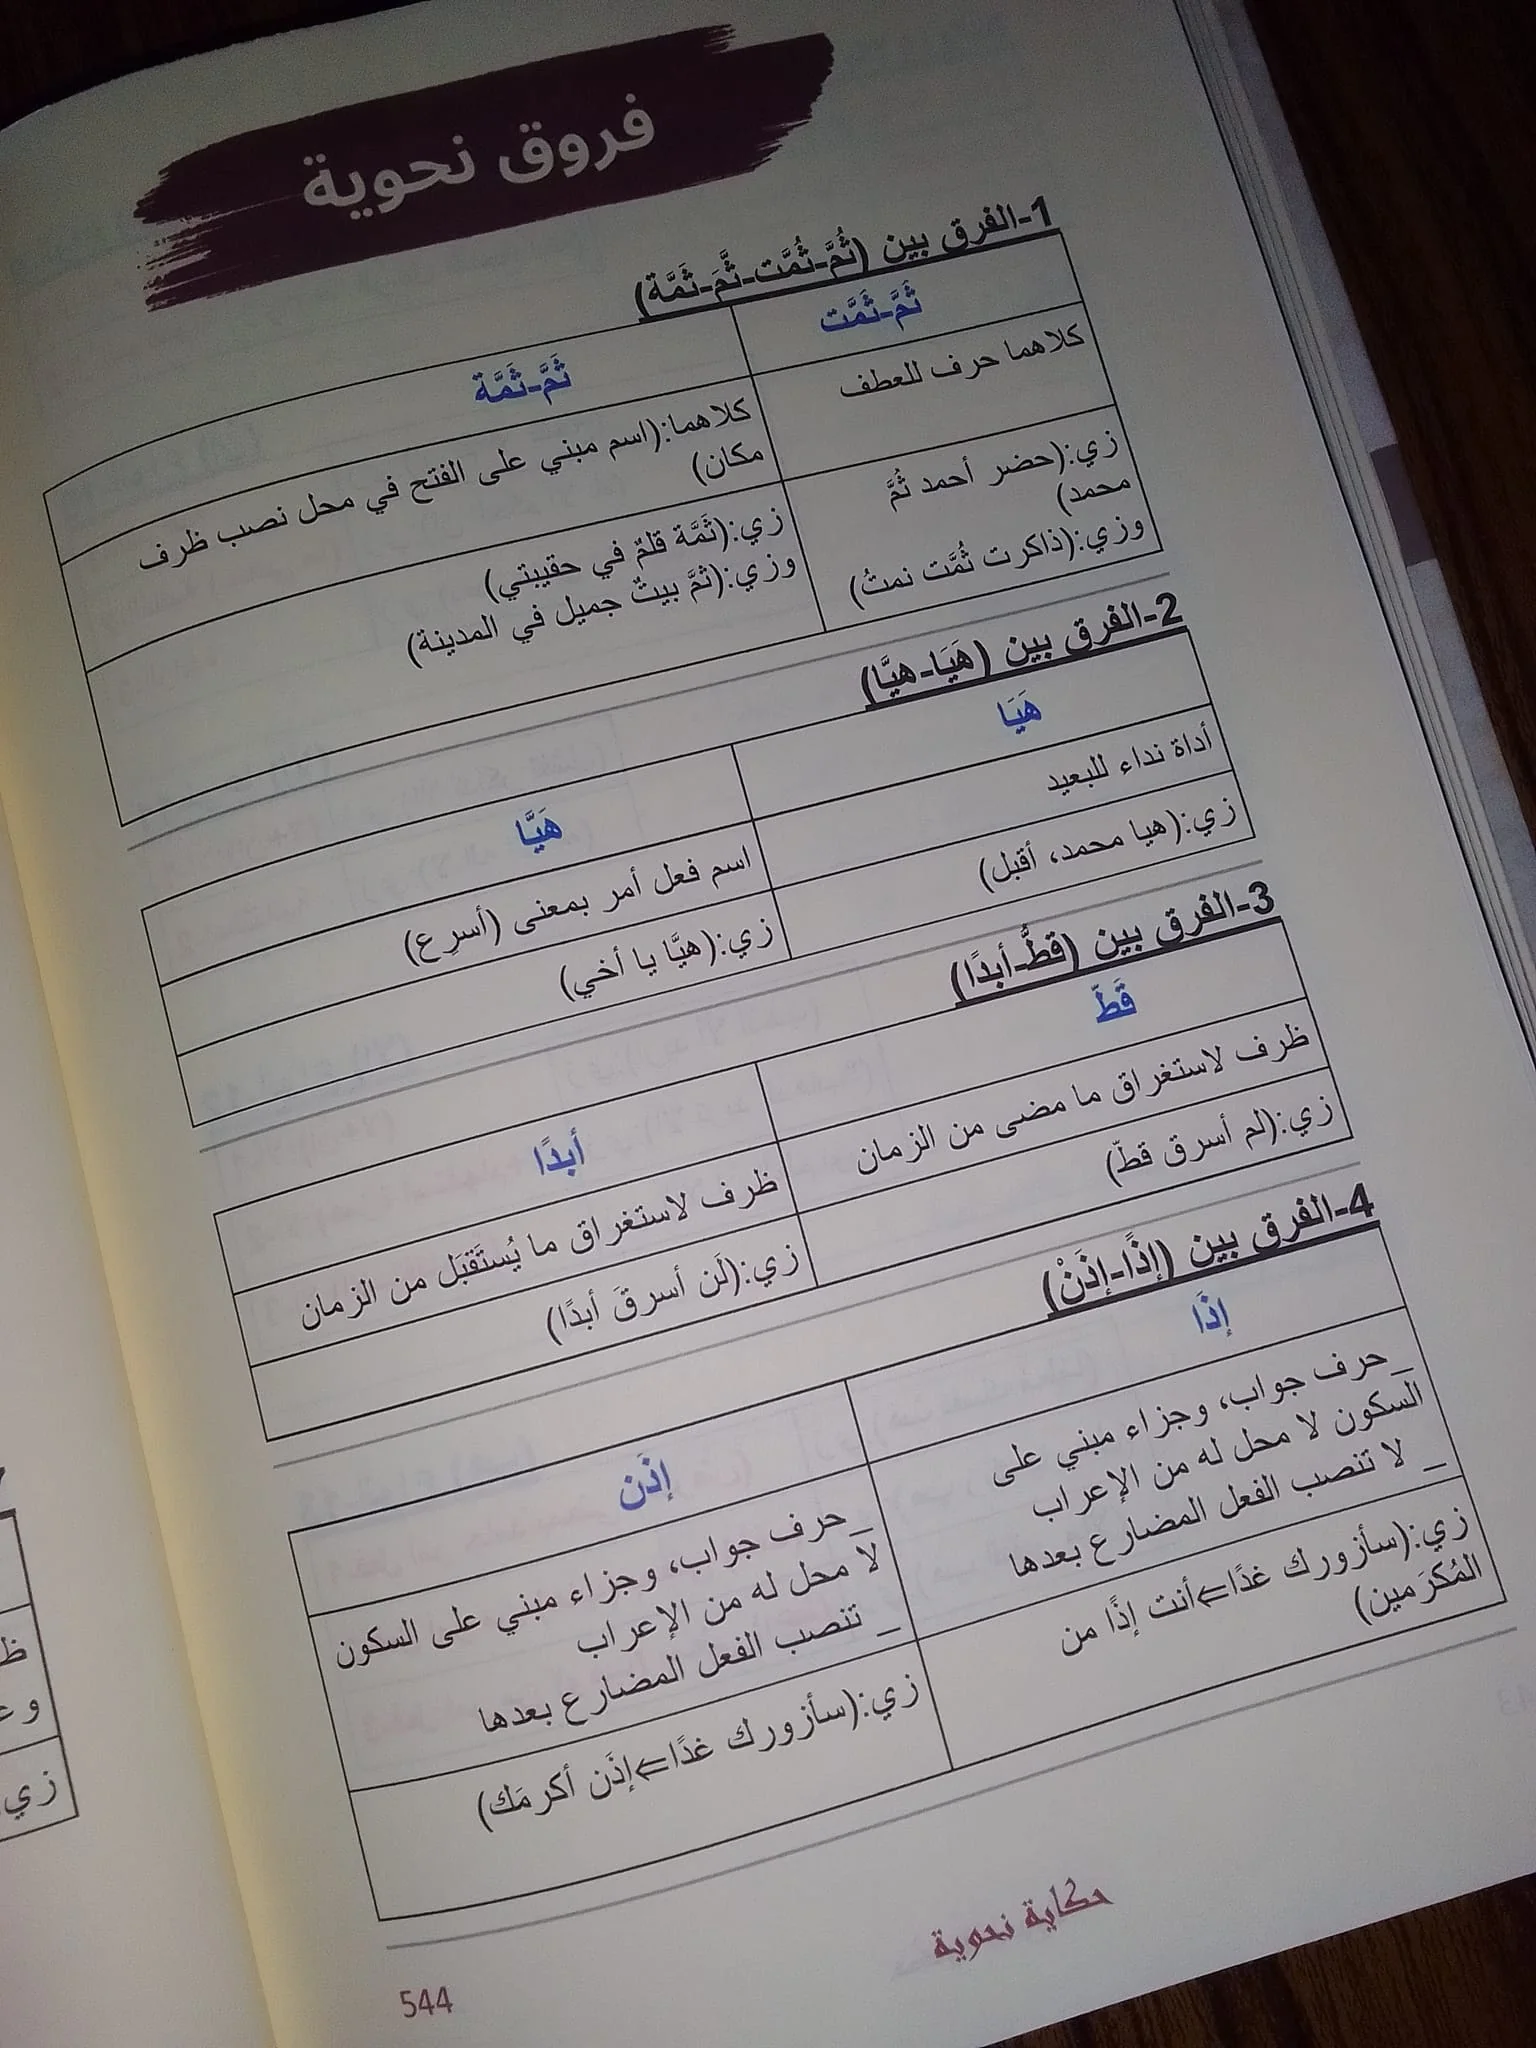 فروق نحوية
1-الفرق بين (ثُمَّ-ثُمَّت-ثَّمَ-ثَمَّة)
ثَمَّ-ثَمَّت
ثَمَّ-ثَمَّة
كلاهما حرف للعطف
كلاهما:(اسم مبني على الفتح في محل نصب ظرف
مكان)
زي:(حضر أحمد ثُمَّ
محمد)
وزي:(ذاكرت ثُمَّت نمتُ)
زي:(ثَمَّة قلمٌ في حقيبتي)
وزي:(ثمَّ بيتٌ جميل في المدينة)
2-الفرق بين (هَيَا-هيَّا)
هَيَا
هَيَّا
أداة نداء للبعيد
اسم فعل أمر بمعنى (أسرِع)
زي:(هيا محمد، أقبل)
زي:(هيَّا يا أخي)
3-الفرق بين (قطُّ-أبدًا)
قَطّ
أبدًا
ظرف لاستغراق ما مضى من الزمان
ظرف لاستغراق ما يُستَقبَل من الزمان
زي:(لم أسرق قطّ)
زي:(لَن أسرقَ أبدًا)
4-الفرق بين (إذًا-إذَنْ)
إذًا
إذَن
_حرف جواب، وجزاء مبني على
السكون لا محل له من الإعراب
_ لا تنصب الفعل المضارع بعدها
_حرف جواب، وجزاء مبني على السكون
لا محل له من الإعراب
_ تنصب الفعل المضارع بعدها
زي:(سأزورك غدًا⇐أنت إذًا من
المُكرَمين)
زي:(سأزورك غدًا⇐إذَن أكرمَك)
حكاية نحوية
544
ظ
وع
زي